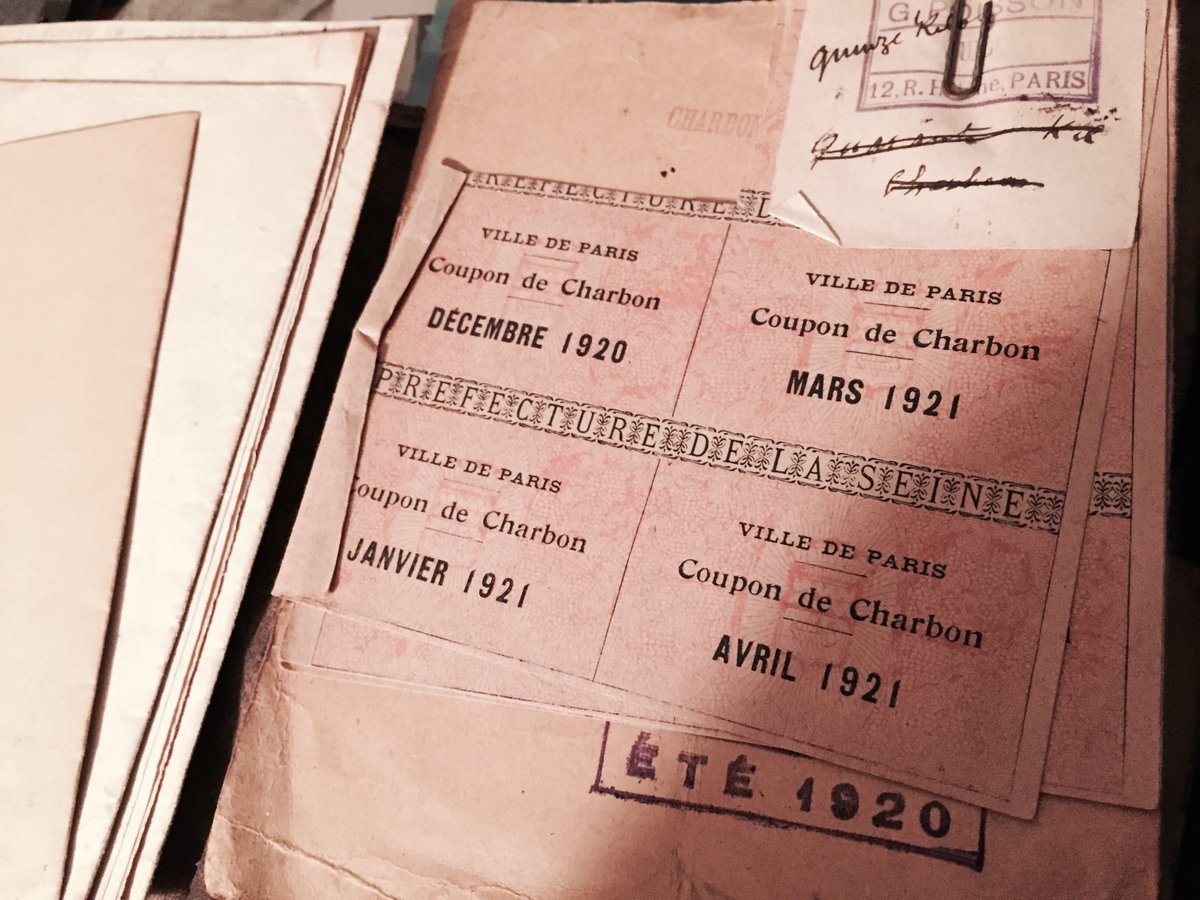 G. POISSON
quinze Kilo
12, R. H, PARIS
CHARBON
Quarante Kil
Charbon
PREFECTURE D
VILLE DE PARIS
Coupon de Charbon
DÉCEMBRE 1920
VILLE DE PARIS
Coupon de Charbon
MARS 1921
PREFECTURE DE LA SEINE
VILLE DE PARIS
Coupon de Charbon
JANVIER 1921
VILLE DE PARIS
Coupon de Charbon
AVRIL 1921
ÉTÉ 1920